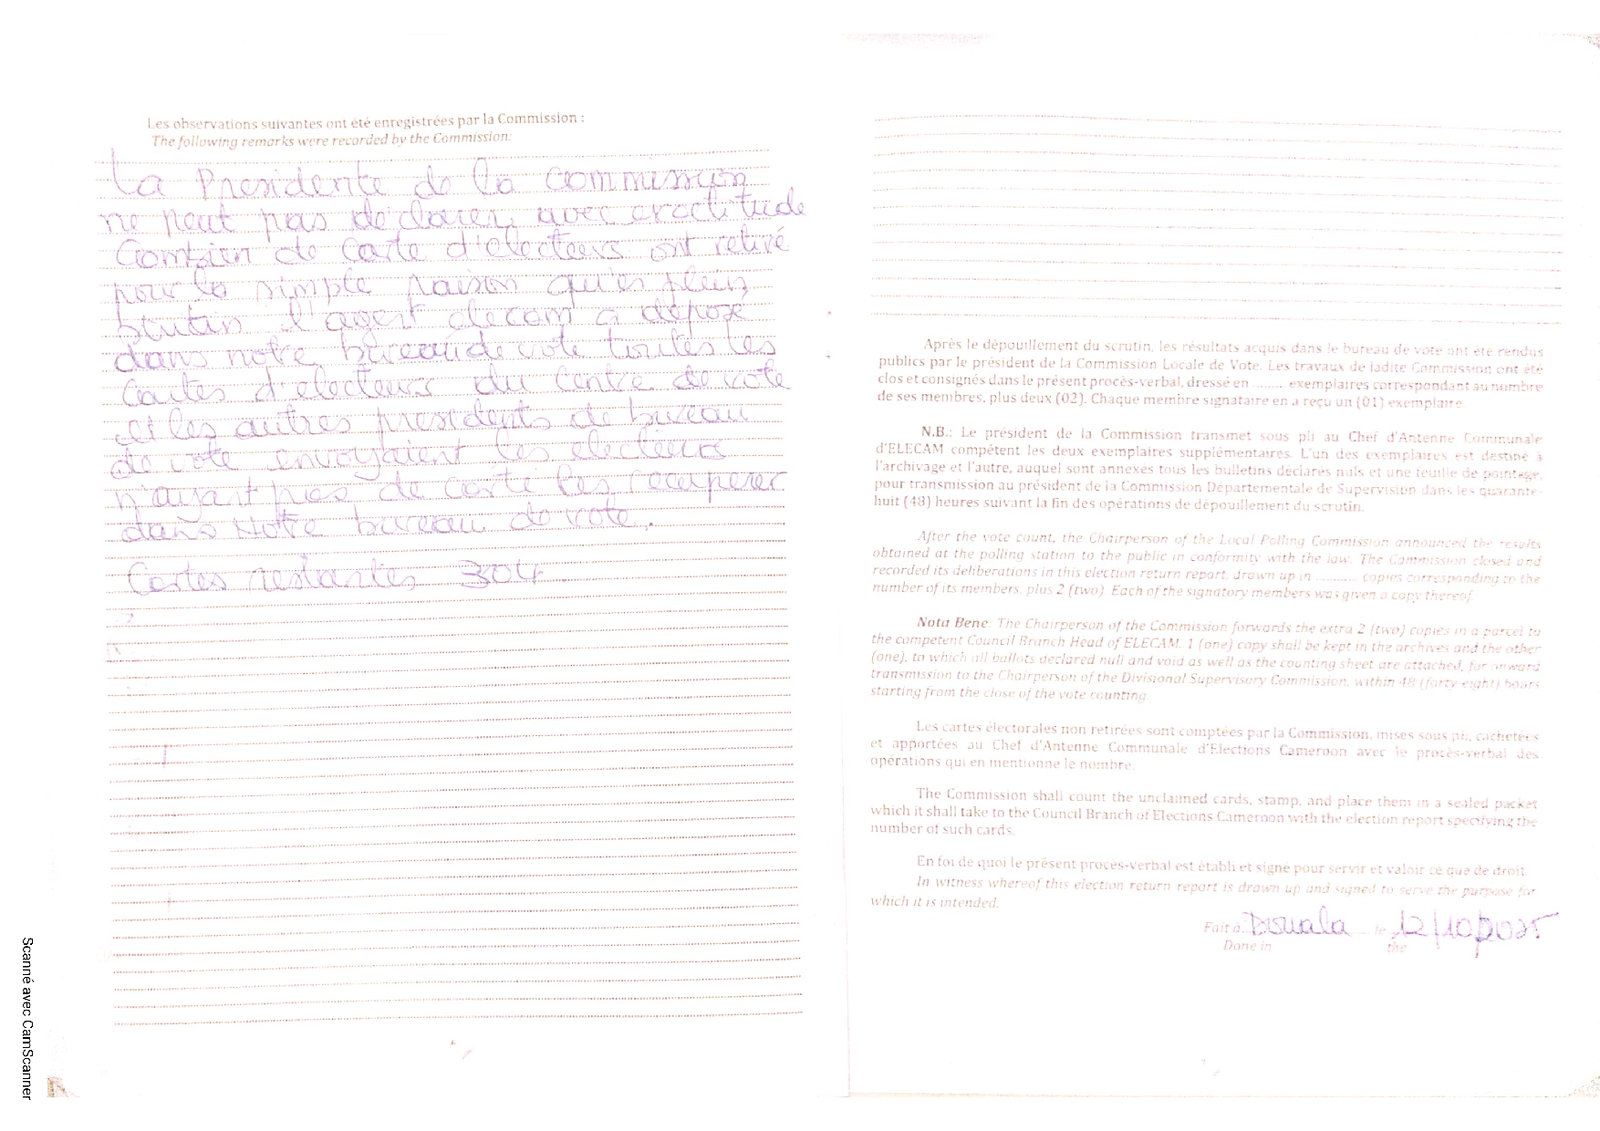 Les observations suivantes ont été enregistrées par la Commission :
The following remarks were recorded by the Commission:
La Presidente de la commission
ne peut pas declarer avec exactitude
Combien de carte d'electeurs ont retiré
pour la simple raison qu'en plein
scrutin l'agent elecam a déposé
dans notre bureau de vote toutes les
Cartes d'electeurs du Centre de vote
et les autres presidents de bureau
de vote envoyaient les electeurs
n'ayant pas de carte les recuperer
dans Notre bureau de vote.
Cartes restantes 304
Après le dépouillement du scrutin, les résultats acquis dans le bureau de vote ont été rendus
publics par le président de la Commission Locale de Vote. Les travaux de ladite Commission ont été
clos et consignés dans le présent procès-verbal, dressé en ........ exemplaires correspondant au nombre
de ses membres, plus deux (02). Chaque membre signataire en a reçu un (01) exemplaire.
N.B.: Le président de la Commission transmet sous pli au Chef d'Antenne Communale
d'ELECAM compétent les deux exemplaires supplémentaires. L'un des exemplaires est destiné à
l'archivage et l'autre, auquel sont annexés tous les bulletins déclarés nuls et une feuille de pointage,
pour transmission au président de la Commission Départementale de Supervision dans les quarante-
huit (48) heures suivant la fin des opérations de dépouillement du scrutin.
After the vote count, the Chairperson of the Local Polling Commission announced the results
obtained at the polling station to the public in conformity with the law. The Commission closed and
recorded its deliberations in this election return report, drawn up in .......... copies corresponding to the
number of its members, plus 2 (two). Each of the signatory members was given a copy thereof.
Nota Bene: The Chairperson of the Commission forwards the extra 2 (two) copies in a parcel to
the competent Council Branch Head of ELECAM. 1 (one) copy shall be kept in the archives and the other
(one), to which all ballots declared null and void as well as the counting sheet are attached, for onward
transmission to the Chairperson of the Divisional Supervisory Commission, within 48 (forty-eight) hours
starting from the close of the vote counting.
Les cartes électorales non retirées sont comptées par la Commission, mises sous pli, cachetées
et apportées au Chef d'Antenne Communale d'Elections Cameroon avec le procès-verbal des
opérations qui en mentionne le nombre.
The Commission shall count the unclaimed cards, stamp, and place them in a sealed packet
which it shall take to the Council Branch of Elections Cameroon with the election report specifying the
number of such cards.
En foi de quoi le présent procès-verbal est établi et signé pour servir et valoir ce que de droit.
In witness whereof this election return report is drawn up and signed to serve the purpose for
which it is intended.
Fait à Douala le 12/10/2025
Done in the
Scanné avec CamScanner